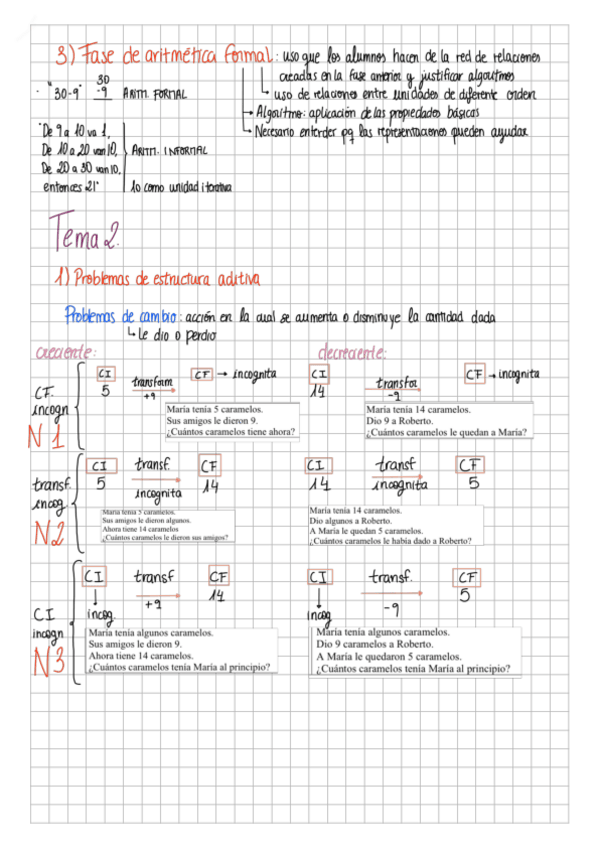 3) Fase de aritmética formal: uso que los alumnos hacen de la red de relaciones
creadas en la fase anterior y justificar algoritmos
uso de relaciones entre unidades de diferente orden
Algoritmo: aplicación de las propiedades básicas
Necesario entender pq las representaciones pueden ayudar
· "30-9" 30
-9 ARITM. FORMAL
"De 9 a 10 va 1,
De 10 a 20 van 10,
De 20 a 30 van 10,
entonces 21"
ARITM. INFORMAL
10 como unidad iterativa
Tema 2.
1) Problemas de estructura aditiva
Problemas de cambio: acción en la cual se aumenta o disminuye la cantidad dada
↳ le dio o perdio
creciente: decreciente:
CF. incogn
N1
CI transform CF → incognita
5 +9
María tenía 5 caramelos.
Sus amigos le dieron 9.
¿Cuántos caramelos tiene ahora?
CI transfor CF → incognita
14 -9
María tenía 14 caramelos.
Dio 9 a Roberto.
¿Cuántos caramelos le quedan a María?
transf. incog.
N2
CI transf. CF
5 incognita 14
María tenía 5 caramelos.
Sus amigos le dieron algunos.
Ahora tiene 14 caramelos
¿Cuántos caramelos le dieron sus amigos?
CI transf CF
14 incognita 5
María tenía 14 caramelos.
Dio algunos a Roberto.
A María le quedan 5 caramelos.
¿Cuántos caramelos le había dado a Roberto?
CI incogn
N3
CI transf CF
incog. +9 14
María tenía algunos caramelos.
Sus amigos le dieron 9.
Ahora tiene 14 caramelos.
¿Cuántos caramelos tenía María al principio?
CI transf. CF
incog -9 5
María tenía algunos caramelos.
Dio 9 caramelos a Roberto.
A María le quedaron 5 caramelos.
¿Cuántos caramelos tenía María al principio?